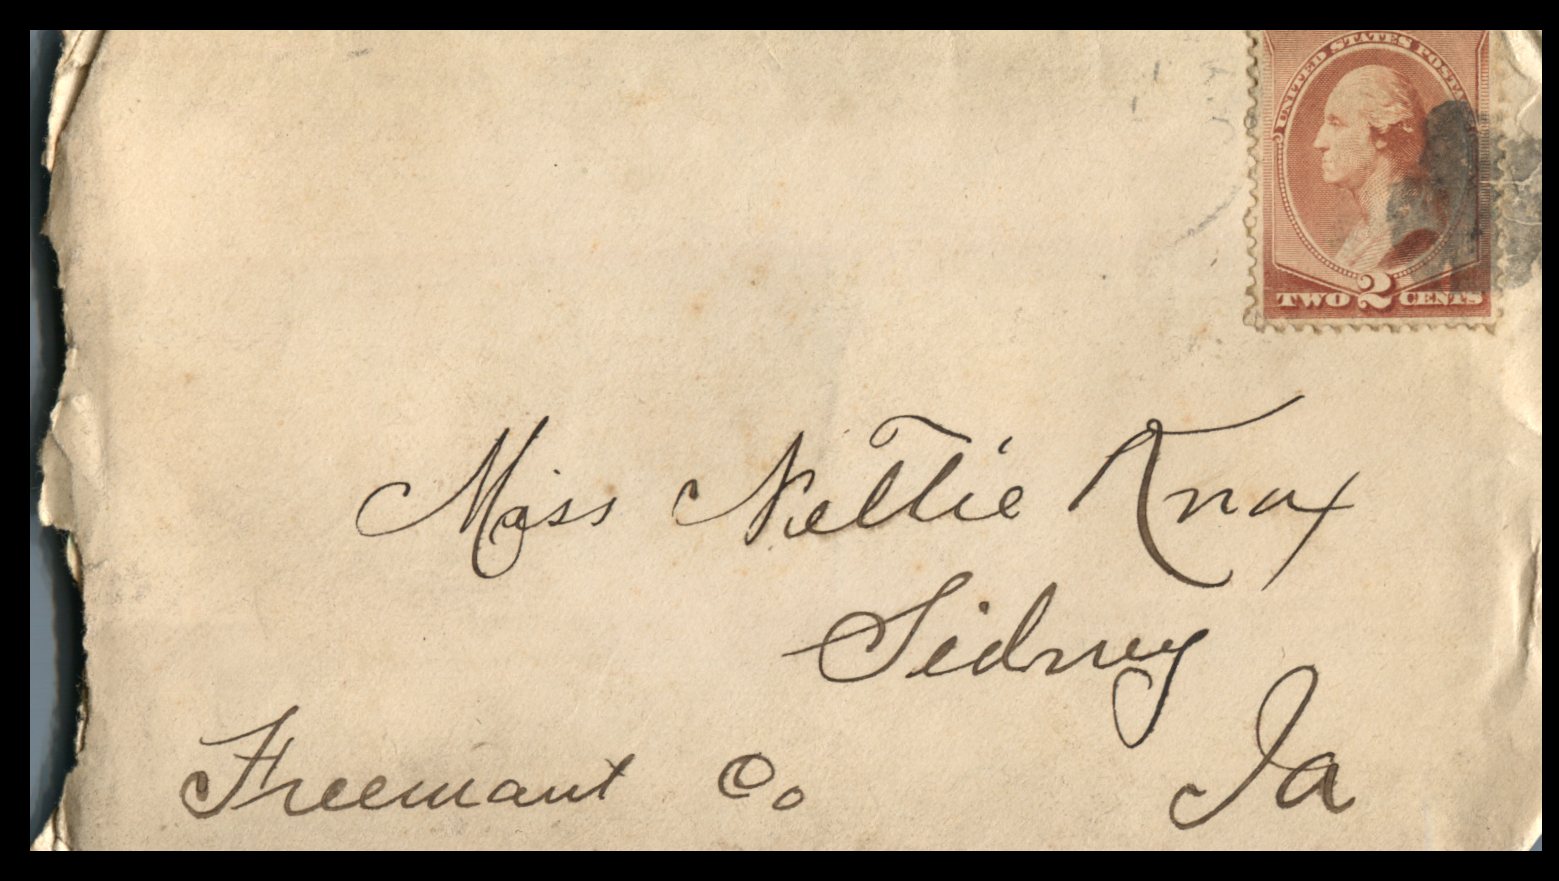 UNITED STATES POSTA
TWO 2 CENTS
Miss Nellie Knox
Sidney
Freemant Co Ia